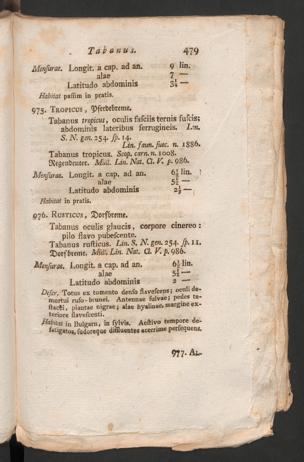 Tabanus. 479
Mensurae. Longit. a cap. ad an. 9 lin.
alae 7 —
Latitudo abdominis 3¼ —
Habitat passim in pratis.
975. TROPICUS, Pferdebreme.
Tabanus tropicus, oculis fasciis ternis fuscis;
abdominis lateribus ferrugineis. Lin.
S. N. gen. 254. sp. 14.
Lin. faun. suec. n. 1886.
Tabanus tropicus. Scop. carn. n. 1008.
Regenbreme. Müll. Lin. Nat. Cl. V. p. 986.
Mensurae. Longit. a cap. ad an. 6½ lin.
alae 5¼ —
Latitudo abdominis 2½ —
Habitat in pratis.
976. RUSTICUS, Dorfbreme.
Tabanus oculis glaucis, corpore cinereo:
pilo flavo pubescente.
Tabanus rusticus. Lin. S. N. gen. 254. sp. 11.
Dorfbreme. Müll. Lin. Nat. Cl. V. p. 986.
Mensurae. Longit. a cap. ad an. 6½ lin.
alae 5¼ —
Latitudo abdominis 2 —
Descr. Totus ex tomento denso flavescens; oculi de-
mortui rufo-brunei. Antennae fulvae; pedes te-
stacei, plantae nigrae; alae hyalinae margine ex-
teriore flavescenti.
Habitat in Bulgarn, in sylvis. Aestivo tempore de-
fatigatos, sudoreque diffluentes acerrime persequens.
977. A